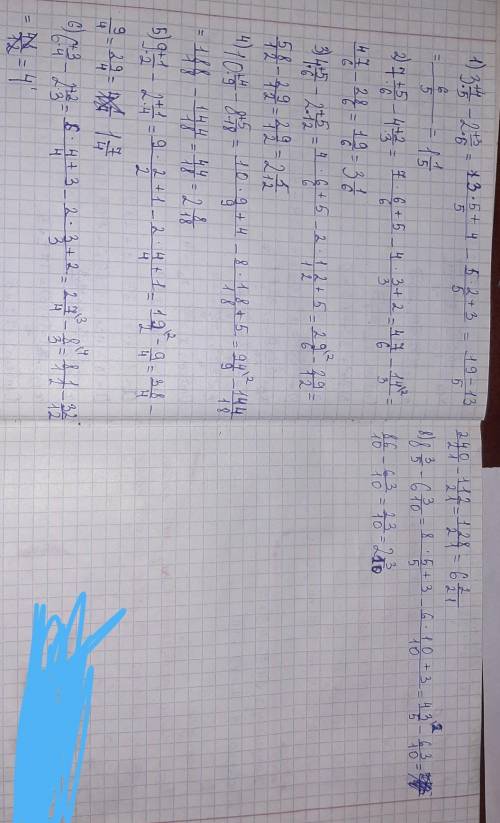 1) 3 4/5 - 2 3/5 = (3·5+4)/5 - (5·2+3)/5 = (19-13)/5
= 6/5 = 1 1/5
2) 7 5/6 - 4 2/3 = (7·6+5)/6 - (4·3+2)/3 = 47/6 - 14/3 =
47/6 - 28/6 = 19/6 = 3 1/6
3) 4 5/6 - 2 5/12 = (4·6+5)/6 - (2·12+5)/12 = 29/6 - 29/12 =
58/12 - 29/12 = 29/12 = 2 5/12
4) 10 4/9 - 8 5/18 = (10·9+4)/9 - (8·18+5)/18 = 94/9 - 144/18
= 188/18 - 144/18 = 44/18 = 2 8/18
5) 9 1/2 - 2 1/4 = (9·2+1)/2 - (2·4+1)/4 = 19/2 - 9/4 = 38/4 -
9/4 = 29/4 = 7
6) 6 3/4 - 2 2/3 = (6·4+3)/4 - (2·3+2)/3 = 27/4 - 8/3 = 81/12 - 32/12
= 4
240/21 - 112/21 = 128/21 = 6 2/21
8) 8 3/5 - 6 3/10 = (8·5+3)/5 - (6·10+3)/10 = 43/5 - 63/10 =
86/10 - 63/10 = 23/10 = 2 3/10